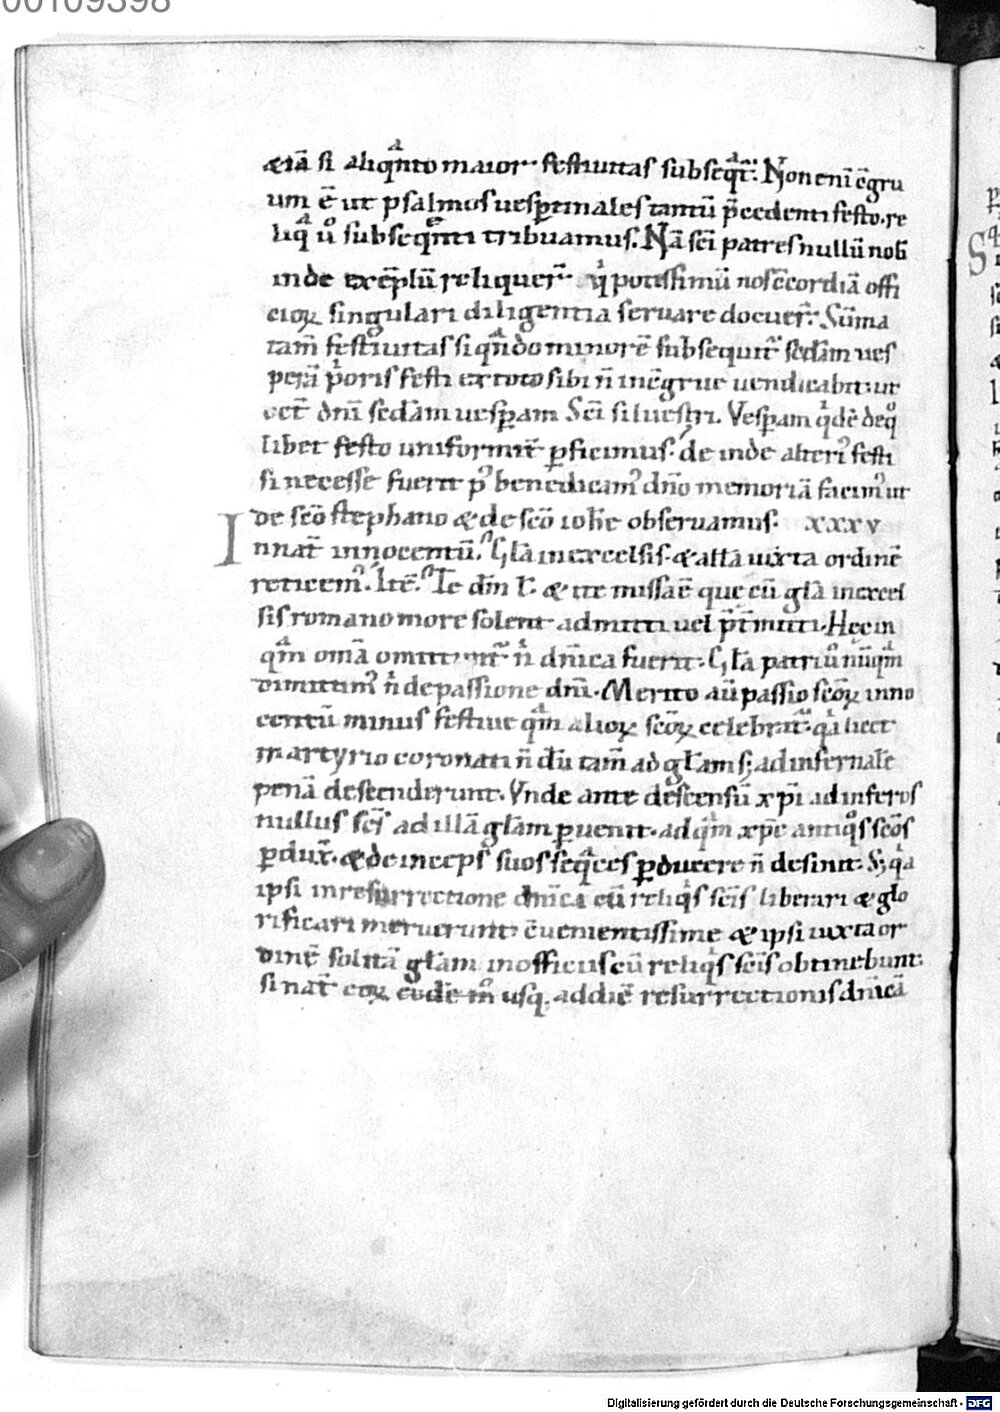 00109398
&iā si aliqͣnto maior festiuitas subseqͣt̄. Non eni ē̄gru
um ē ut psalmos uesꝑtinales tantū p̄cedenti festo. re
liqͣ ū subseqͤnti tribuamus. Nā sc̄i patres nullū nob̄
inde exēplū reliquer̄ qͥ potissimū nos cōcordiā offi
cioꝝ singulari diligentia seruare docuer̄. Sūma
tam̄ festiuitas si qͣndo minorē subsequit̄ sc̄dam ues
perā pͥoris festi ex toto sibi n̄ incōgrue uendicabit: ut
oct̄ dn̄i sc̄dam uesꝑam Sc̄i siluestri. Vesꝑam qͥdē de qͦ
libet festo uniformit̄ ꝑficimus. de inde alteriꝰ festi
si necesse fuerit pꝰ benedicamꝰ dn̄o memoriā facimꝰ ut
de sc̄o stephano & de sc̄o ioh̄e obseruamus. xxxv
Innat̄ innocentū. Gl̄a in excelsis. & all̄a iuxta ordinē
reticemꝰ. Itē. Te dm̄ l̄. & ite missa ē que cū gl̄a in excel
sis romano more solent admitti uel p̄t̄mitti. Hec in
qͣm om̄a omittunt̄ n̄ dn̄ica fuerit. Gl̄a patri ū nūqͣm
dimittimꝰ n̄ de passione dn̄i. Merito aū passio sc̄oꝝ inno
centū minus festiue qͣm alioꝝ sc̄oꝝ celebrat̄. qͥa licet
martyrio coronati n̄ dū tam̄ ad gl̄am s; ad infernale
penā descenderunt. Vnde ante descensū xp̄i ad inferos
nullus sc̄s ad illā gl̄am ꝑuenit. ad qͣm xp̄c antiqͦs sc̄os
ꝑdux̄. & de inceps suos seqͣces ꝑducere n̄ desinit. S; qͥa
ipsi in resurrectione dn̄ica cū reliqͥs sc̄is liberari & glo
rificari meruerunt cōuenientissime & ipsi iuxta or
dinē solitā gl̄am in officiis cū reliqͥs sc̄is obtinebunt.
si nat̄ eoꝝ eodē mͦ usq; ad diē resurrectionis dn̄icā
Digitalisierung gefördert durch die Deutsche Forschungsgemeinschaft - DFG